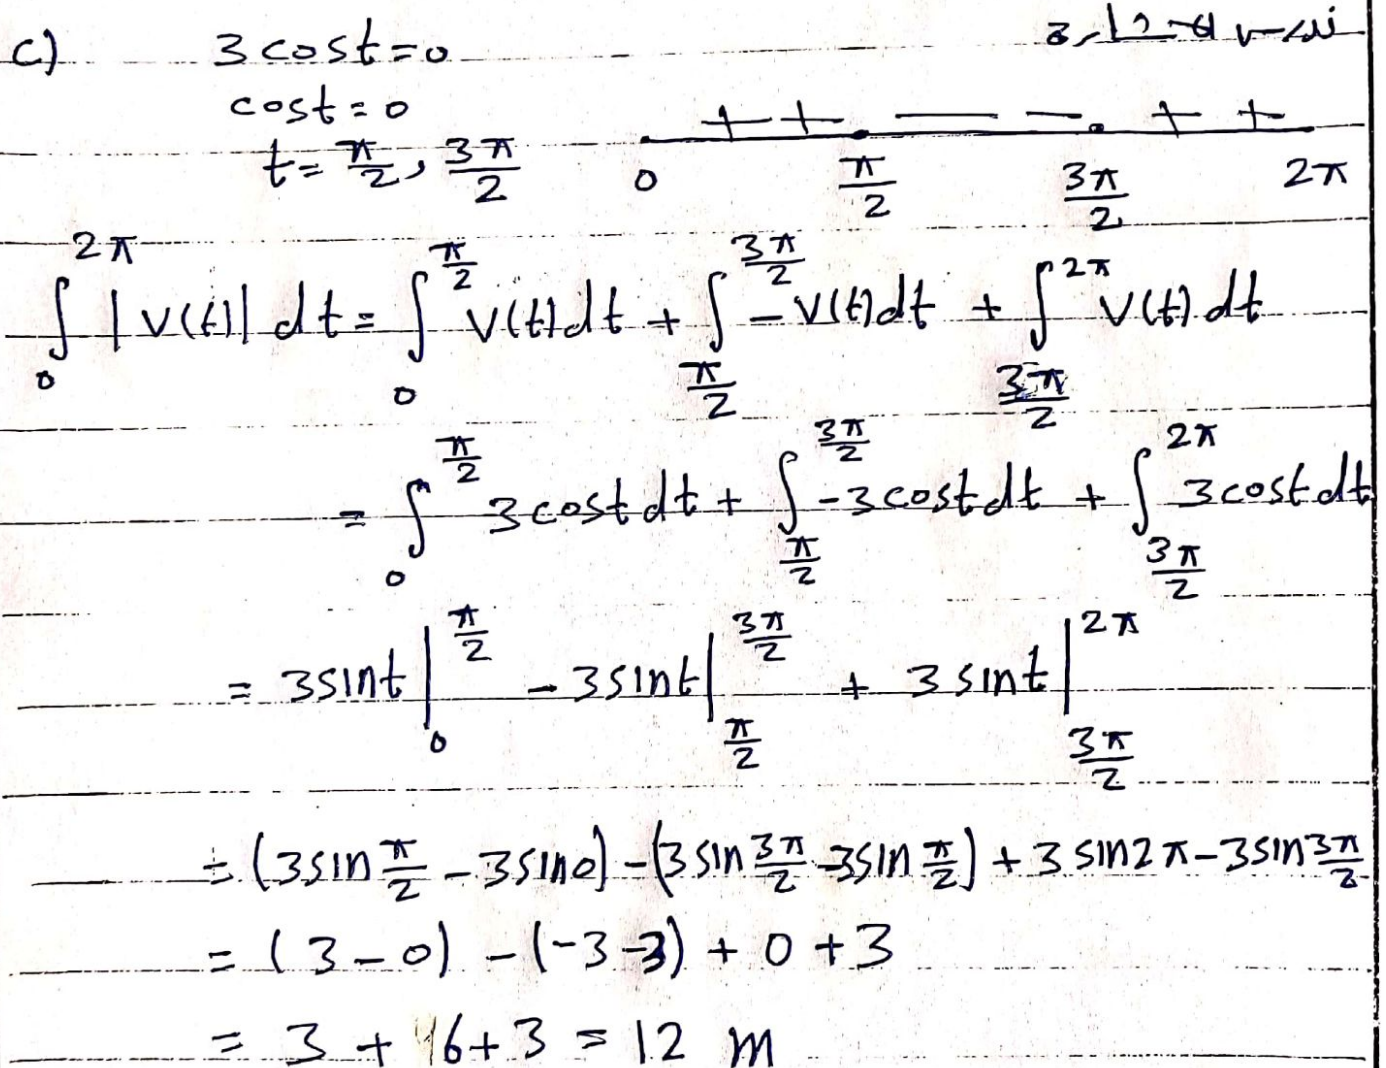 c) 3 cost = 0
cost = 0
t = π/2, 3π/2
+ + — — + +
0 π/2 3π/2 2π
∫₀^{2π} |v(t)| dt = ∫₀^{π/2} v(t) dt + ∫_{π/2}^{3π/2} -v(t) dt + ∫_{3π/2}^{2π} v(t) dt
= ∫₀^{π/2} 3 cost dt + ∫_{π/2}^{3π/2} -3 cost dt + ∫_{3π/2}^{2π} 3 cost dt
= 3 sint |₀^{π/2} - 3 sint |_{π/2}^{3π/2} + 3 sint |_{3π/2}^{2π}
= (3 sin π/2 - 3 sin 0) - (3 sin 3π/2 - 3 sin π/2) + 3 sin 2π - 3 sin 3π/2
= (3 - 0) - (-3 - 3) + 0 + 3
= 3 + 6 + 3 = 12 m